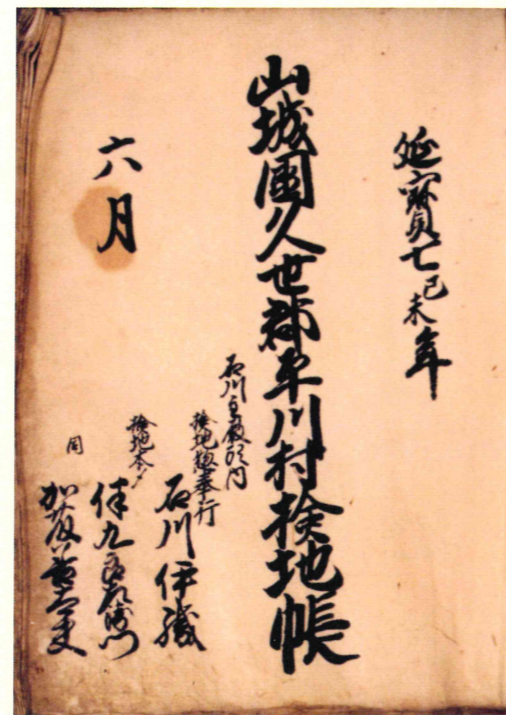 延寳七己未年
山城國久世郡平川村検地帳
石川主殿頭内
検地惣奉行
石川伊織
検地本〆
伴九郎左衛門
同
加茂
六月